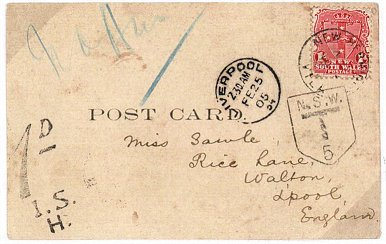 NEW
SOUTH WALES
POSTAGE
LIVERPOOL
2.30 AM
FE 25
05
N.S.W.
T
5
POST CARD
Miss Sawle,
Rice Lane,
Walton,
L'pool,
England
1D
I.S.
H.